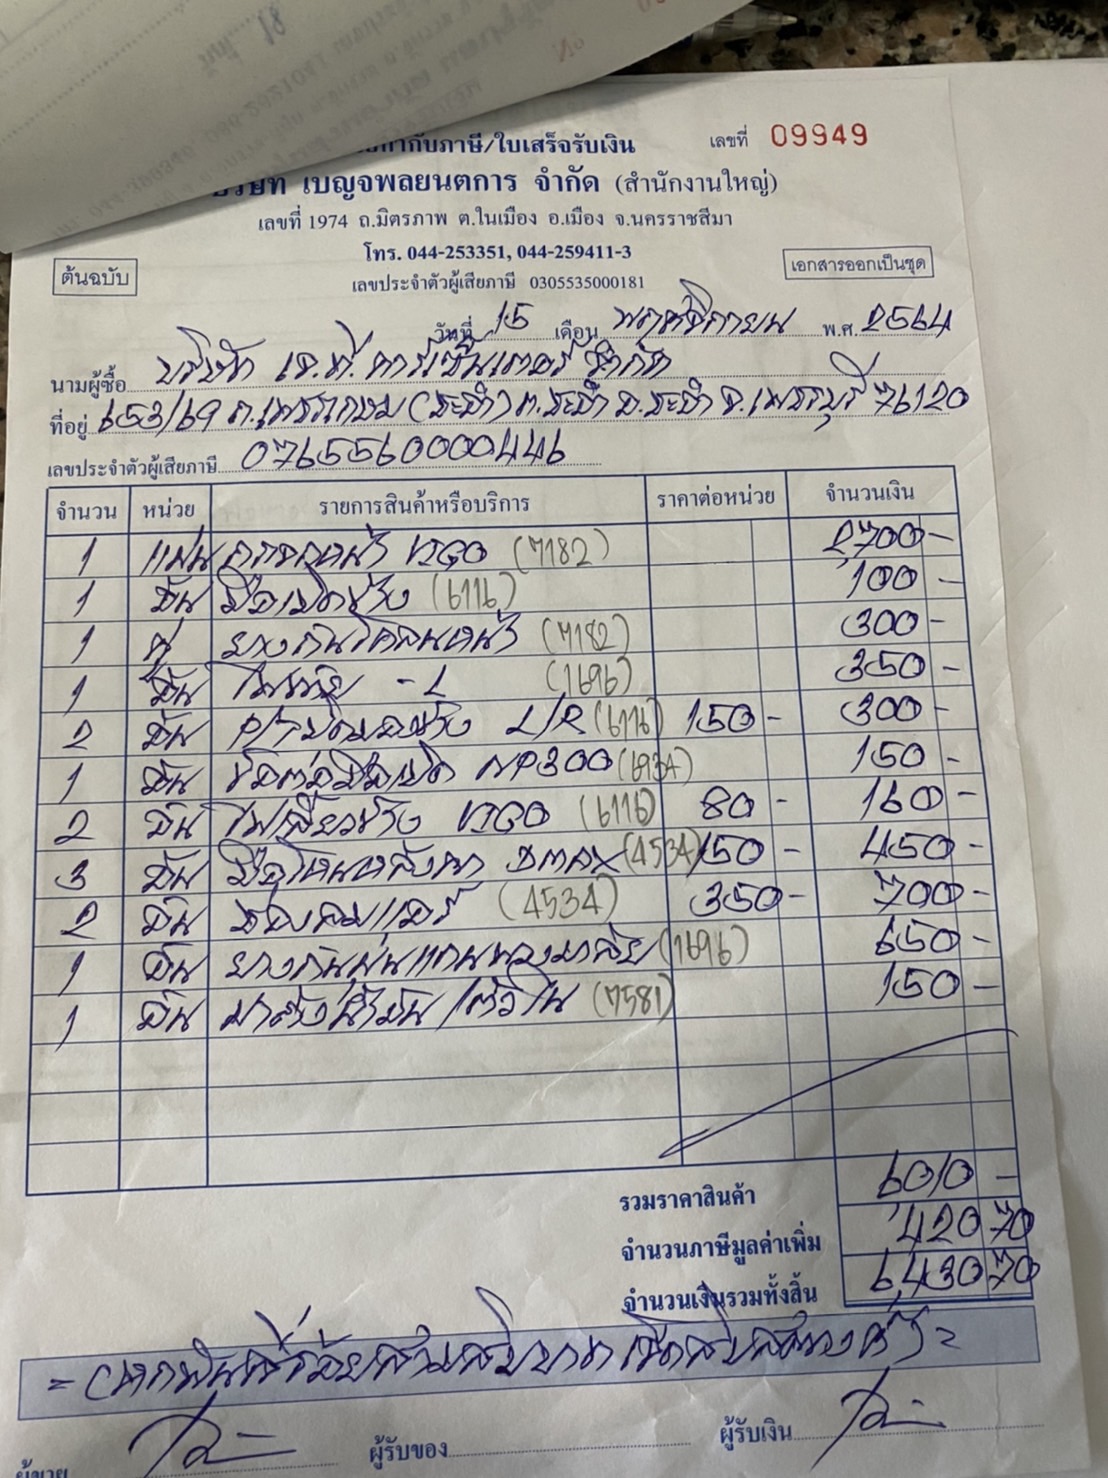 กำกับภาษี/ใบเสร็จรับเงิน เลขที่ 09949
บริษัท เบญจพลยนตการ จำกัด (สำนักงานใหญ่)
เลขที่ 1974 ถ.มิตรภาพ ต.ในเมือง อ.เมือง จ.นครราชสีมา
โทร. 044-253351, 044-259411-3
ต้นฉบับ เอกสารออกเป็นชุด
เลขประจำตัวผู้เสียภาษี 0305535000181
วันที่ 15 เดือน พฤศจิกายน พ.ศ. 2564
นามผู้ซื้อ บริษัท เจ.ที. คาร์เซ็นเตอร์ จำกัด
ที่อยู่ 653/69 ถ.เพชรเกษม (ชะอำ) ต.ชะอำ อ.ชะอำ จ.เพชรบุรี 76120
เลขประจำตัวผู้เสียภาษี 0765560000446
จำนวน หน่วย รายการสินค้าหรือบริการ ราคาต่อหน่วย จำนวนเงิน
1 แผ่น กระจกหน้า VIGO (7182) 2700 -
1 อัน มือเปิดข้าง (6116) 100 -
1 คู่ ยางกันโคลนหน้า (7182) 300 -
1 อัน ไฟท้าย - L (1696) 350 -
2 อัน L/R (6116) 150 - 300 -
1 อัน NP300 (6934) 150 -
2 อัน ไฟเลี้ยวข้าง VIGO (6116) 80 - 160 -
3 อัน มือโหนหลังคา DMAX (4534) 150 - 450 -
2 อัน ช่องลมแอร์ (4534) 350 - 700 -
1 อัน ยางกันฝุ่นแกนพวงมาลัย (1696) 650 -
1 อัน (7581) 150 -
รวมราคาสินค้า 6010 -
จำนวนภาษีมูลค่าเพิ่ม 420 70
จำนวนเงินรวมทั้งสิ้น 6,430 70
= (หกพันสี่ร้อยสามสิบบาทเจ็ดสิบสตางค์) =
ผู้ขาย ผู้รับของ ผู้รับเงิน